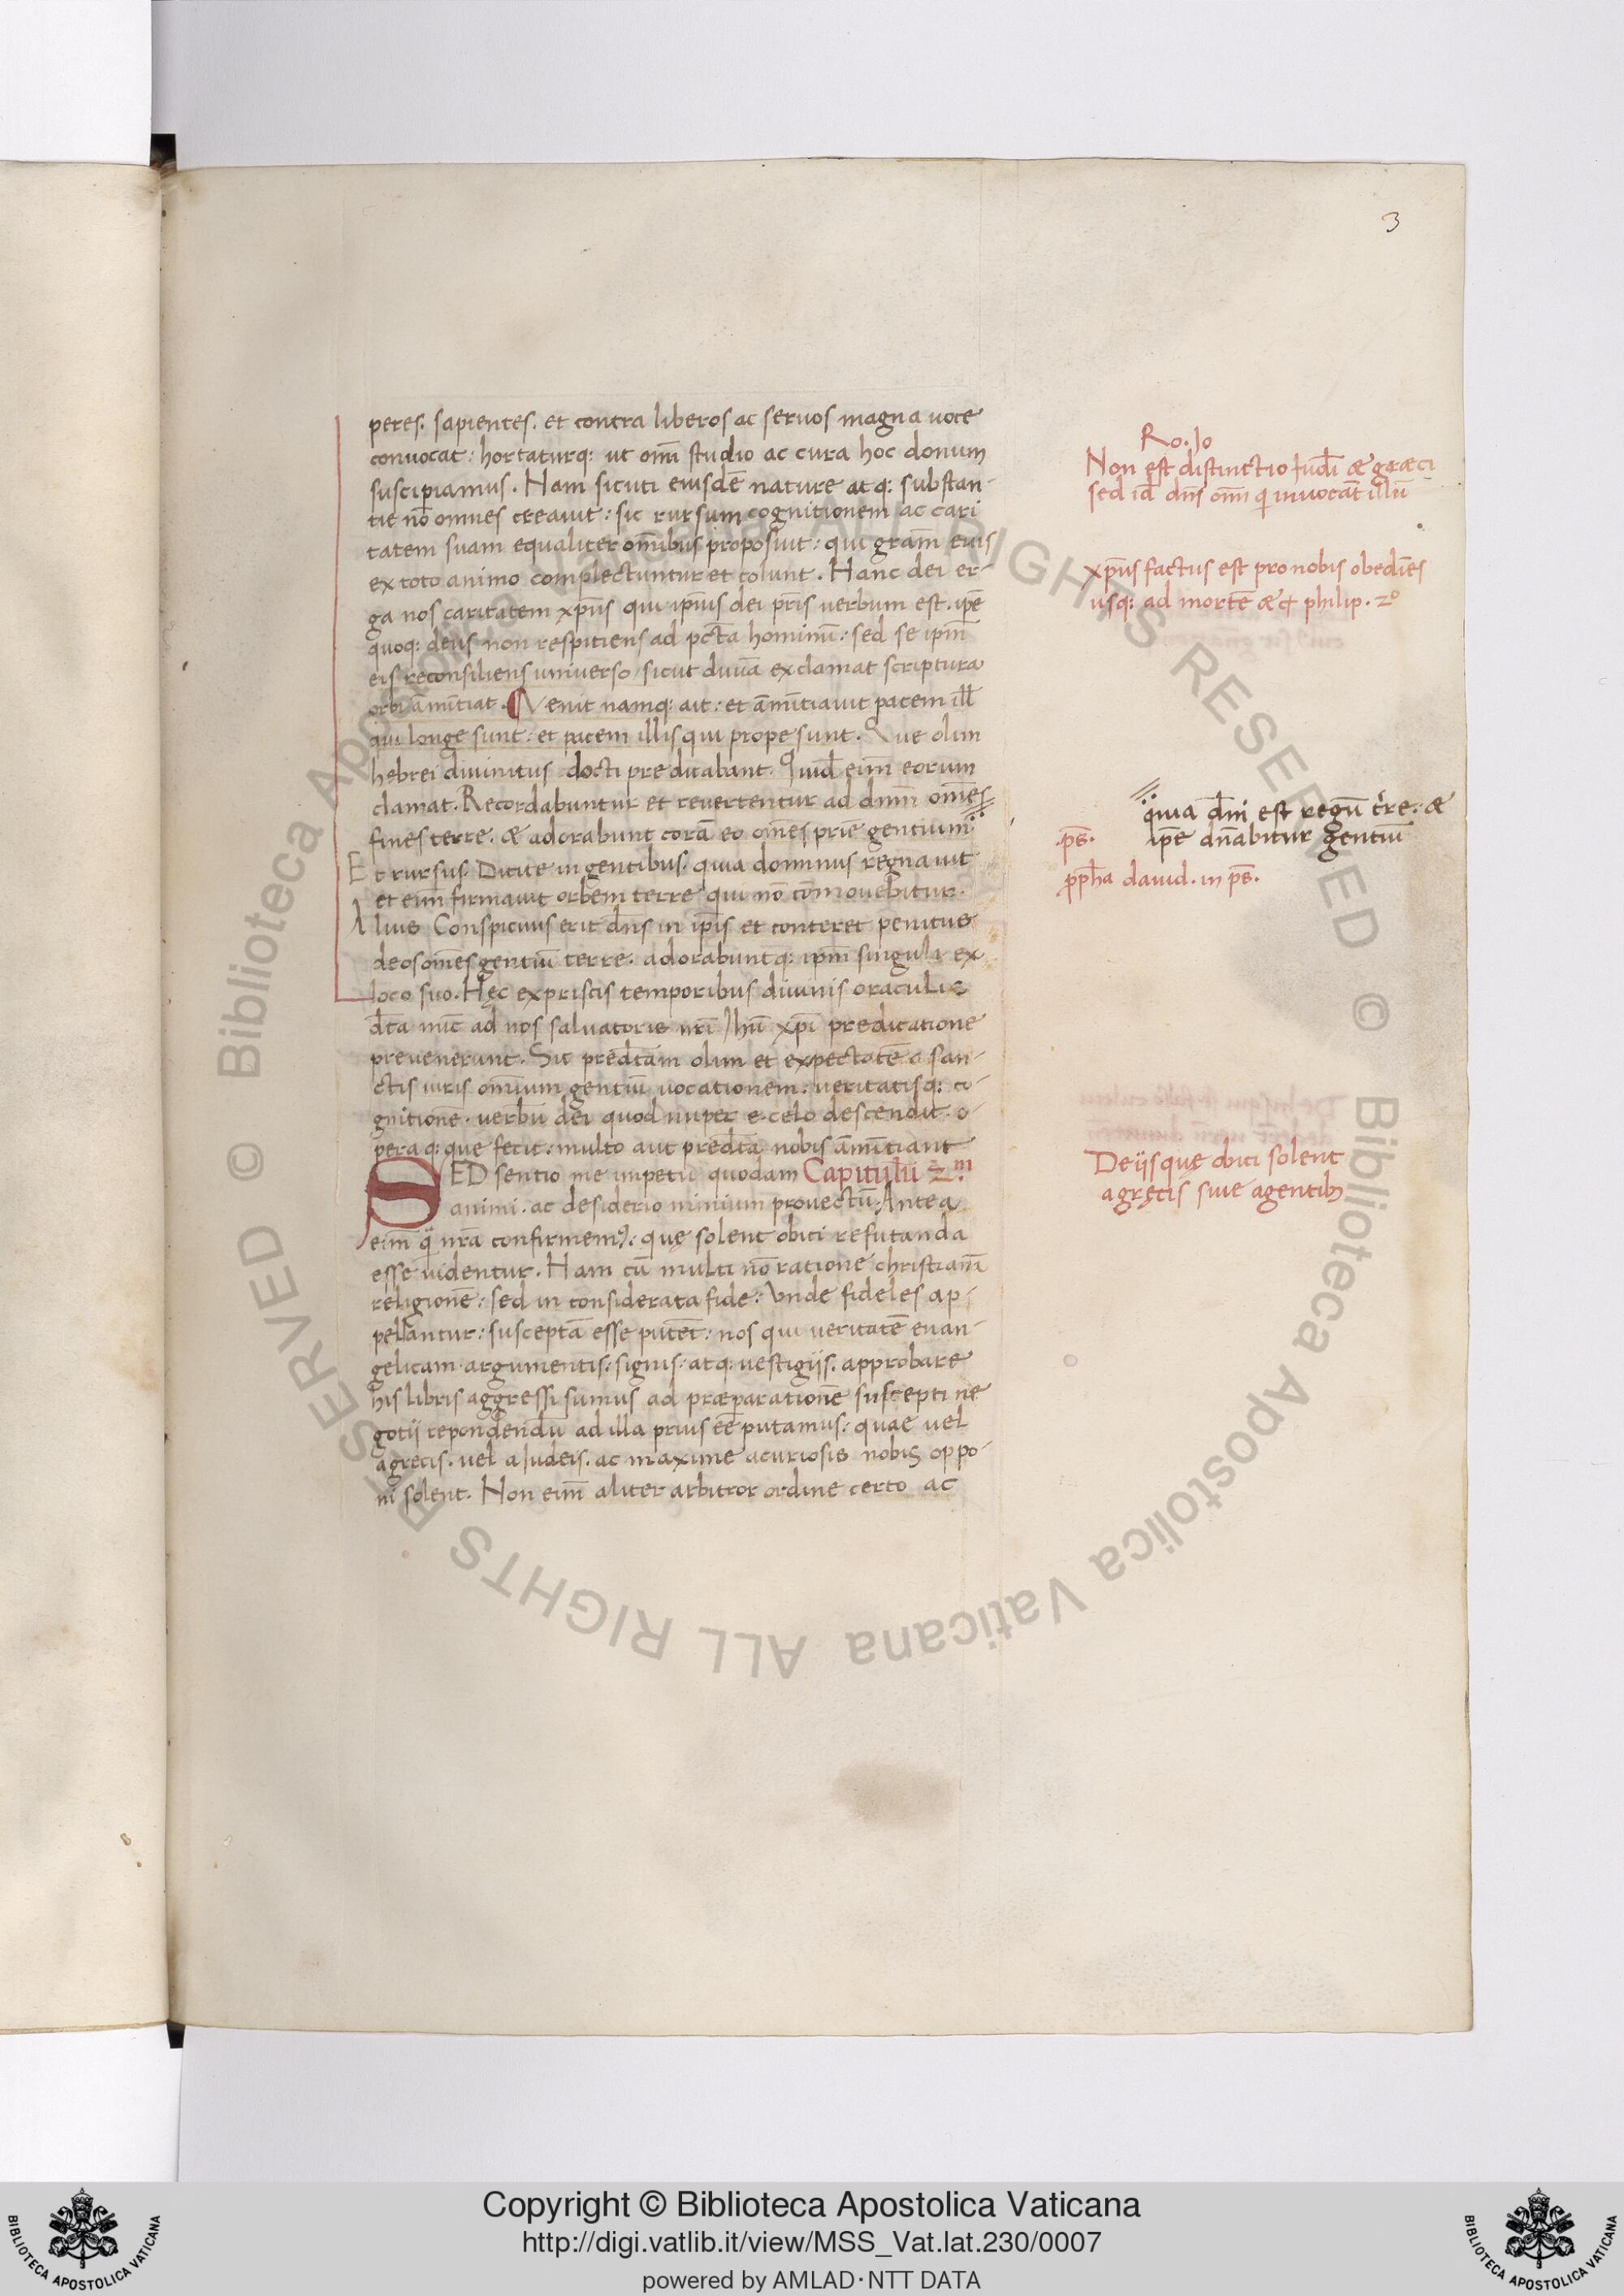 3
peres. sapientes. et contra liberos ac seruos magna uoce
conuocat: hortaturq: ut om̄i studio ac cura hoc donum
suscipiamus. Nam sicuti eiusdē nature atq: substan-
tie nō omnes creauit: sic rursum cognitionem ac cari
tatem suam equaliter om̄ibus proposuit: qui gram̄ euis
ex toto animo complectuntur et colunt. Hanc dei er-
ga nos caritatem xp̄us qui ip̄ius dei pr̄is uerbum est. ip̄e
quoq: deus non respitiens ad pctā hominū: sed se ipm̄
eis reconsiliens universo sicut diuīa exclamat scriptura
orbi ām̄tiat. Venit namq: ait: et ām̄tiauit pacem ill̄
qui longe sunt: et pacem illis qui prope sunt. Que olim
hebrei diuinitus docti predicabant. Quid̄ eim̄ eorum
clamat. Recordabuntur et reuertentur ad dnm̄ om̄es
fines terre. æ adorabunt corā eo om̄es prie gentium
Et rursus. Dicite in gentibus. quia dominus regnauit
et eim̄ firmauit orbem terre qui nō cōmouebitur.
Alius Conspicuus erit dn̄s in ip̄is et conteret penitus
deos om̄es gentiū terre. adorabuntq: ipm̄ singuli ex
loco suo. Hęc ex priscis temporibus diuinis oraculis
dc̄ta nūc ad nos saluatoris nr̄i Jhū xp̄i predicatione
preuenerunt. Sic predc̄tam olim et expectatē a san-
ctis uiris om̄ium gentiū uocationem: ueritatisq: co-
gnitionē. uerbū dei quod nuper e celo descendit. o-
peraq: que fecit: multo aut predc̄ta nobis ām̄tiant
SED sentio me impetu quodam Capitulū 2m
animi. ac desiderio nimium prouectū: Antea
eim̄ q̄ nr̄a confirmemꝰ: quę solent obici refutanda
esse uidentur. Nam cū multi nō ratione christianā
religionē: sed in considerata fide: Unde fideles ap-
pellantur: susceptā esse putēt: nos qui ueritatē euan-
gelicam argumentis: signis: atq: uestigijs. approbare
his libris aggressi sumus ad præparationē suscepti ne
gotij repondendū ad illa prius eē putamus: quae uel
a grecis. uel a Judeis. ac maxime a curiosis nobis oppo-
ni solent. Non eim̄ aliter arbitror ordine certo ac
Ro. Jo
Non est distinctio Judī æ græci
sed id̄ dn̄s om̄ q̄ inuocāt illū
xp̄us factus est pro nobis obediēs
usq: ad mortē æc philip. 2o
quia dn̄i est regū tr̄re: æ
ip̄e dn̄abitur gentiū
.ps̄.
pp̄ha dauid. in ps̄.
De ijs quę obici solent
a gręcis siue a gentib
Copyright © Biblioteca Apostolica Vaticana
http://digi.vatlib.it/view/MSS_Vat.lat.230/0007
powered by AMLAD·NTT DATA
BIBLIOTECA APOSTOLICA VATICANA
BIBLIOTECA APOSTOLICA VATICANA
© Biblioteca Apostolica Vaticana ALL RIGHTS RESERVED
© Biblioteca Apostolica Vaticana ALL RIGHTS RESERVED